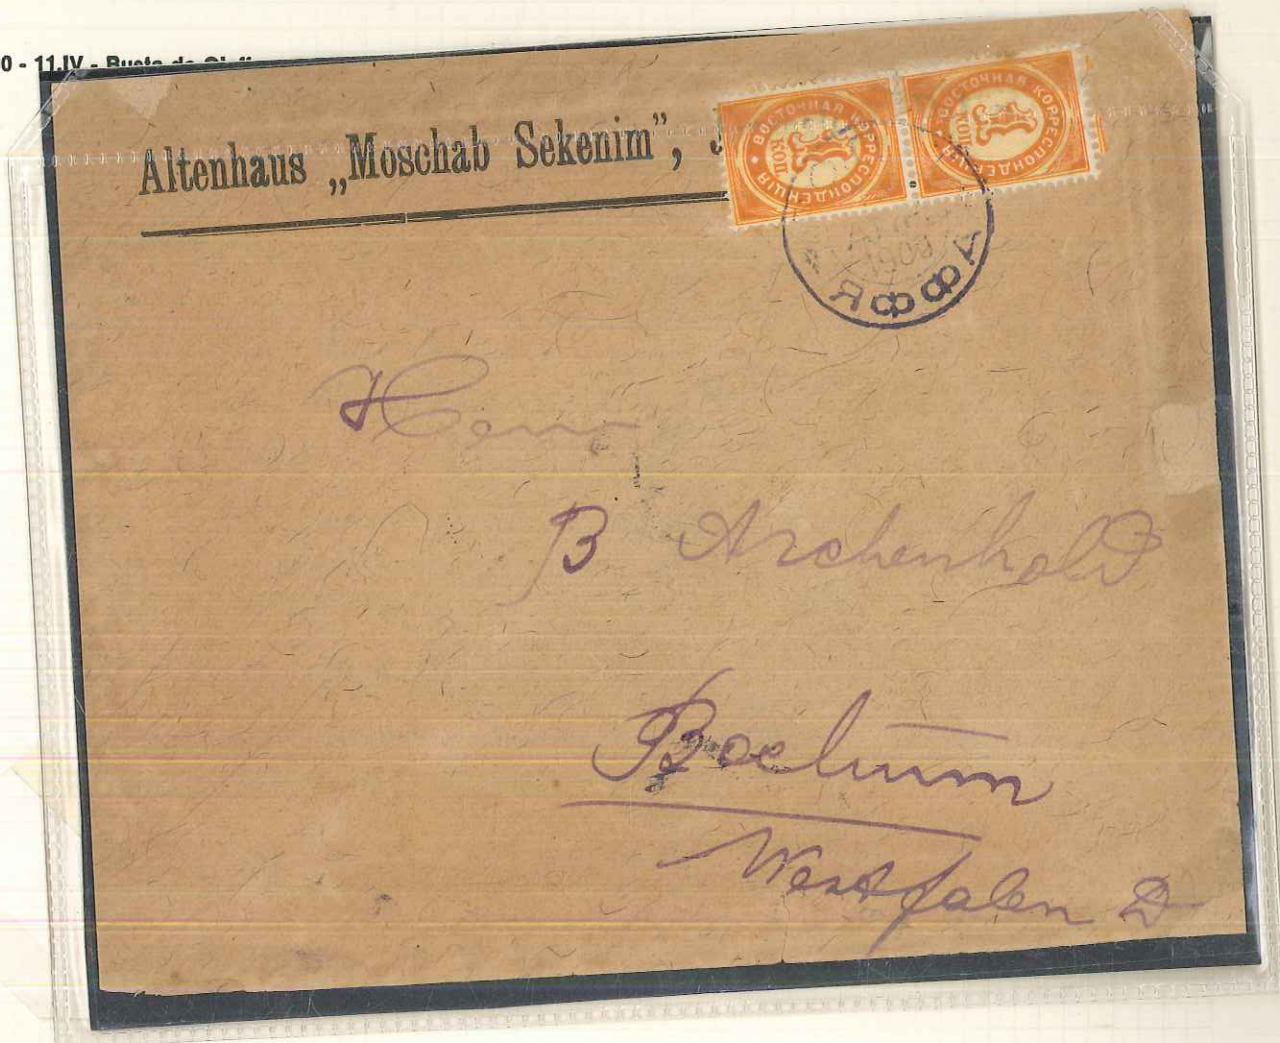 0 - 11.IV - Busta de
Altenhaus „Moschab Sekenim”, J
ВОСТОЧНАЯ КОРРЕСПОНДЕНЦІЯ
1
КОП
ВОСТОЧНАЯ КОРРЕСПОНДЕНЦІЯ
1
КОП
ЯФФА
Herrn
B Archenhold
Bochum
Westfalen D